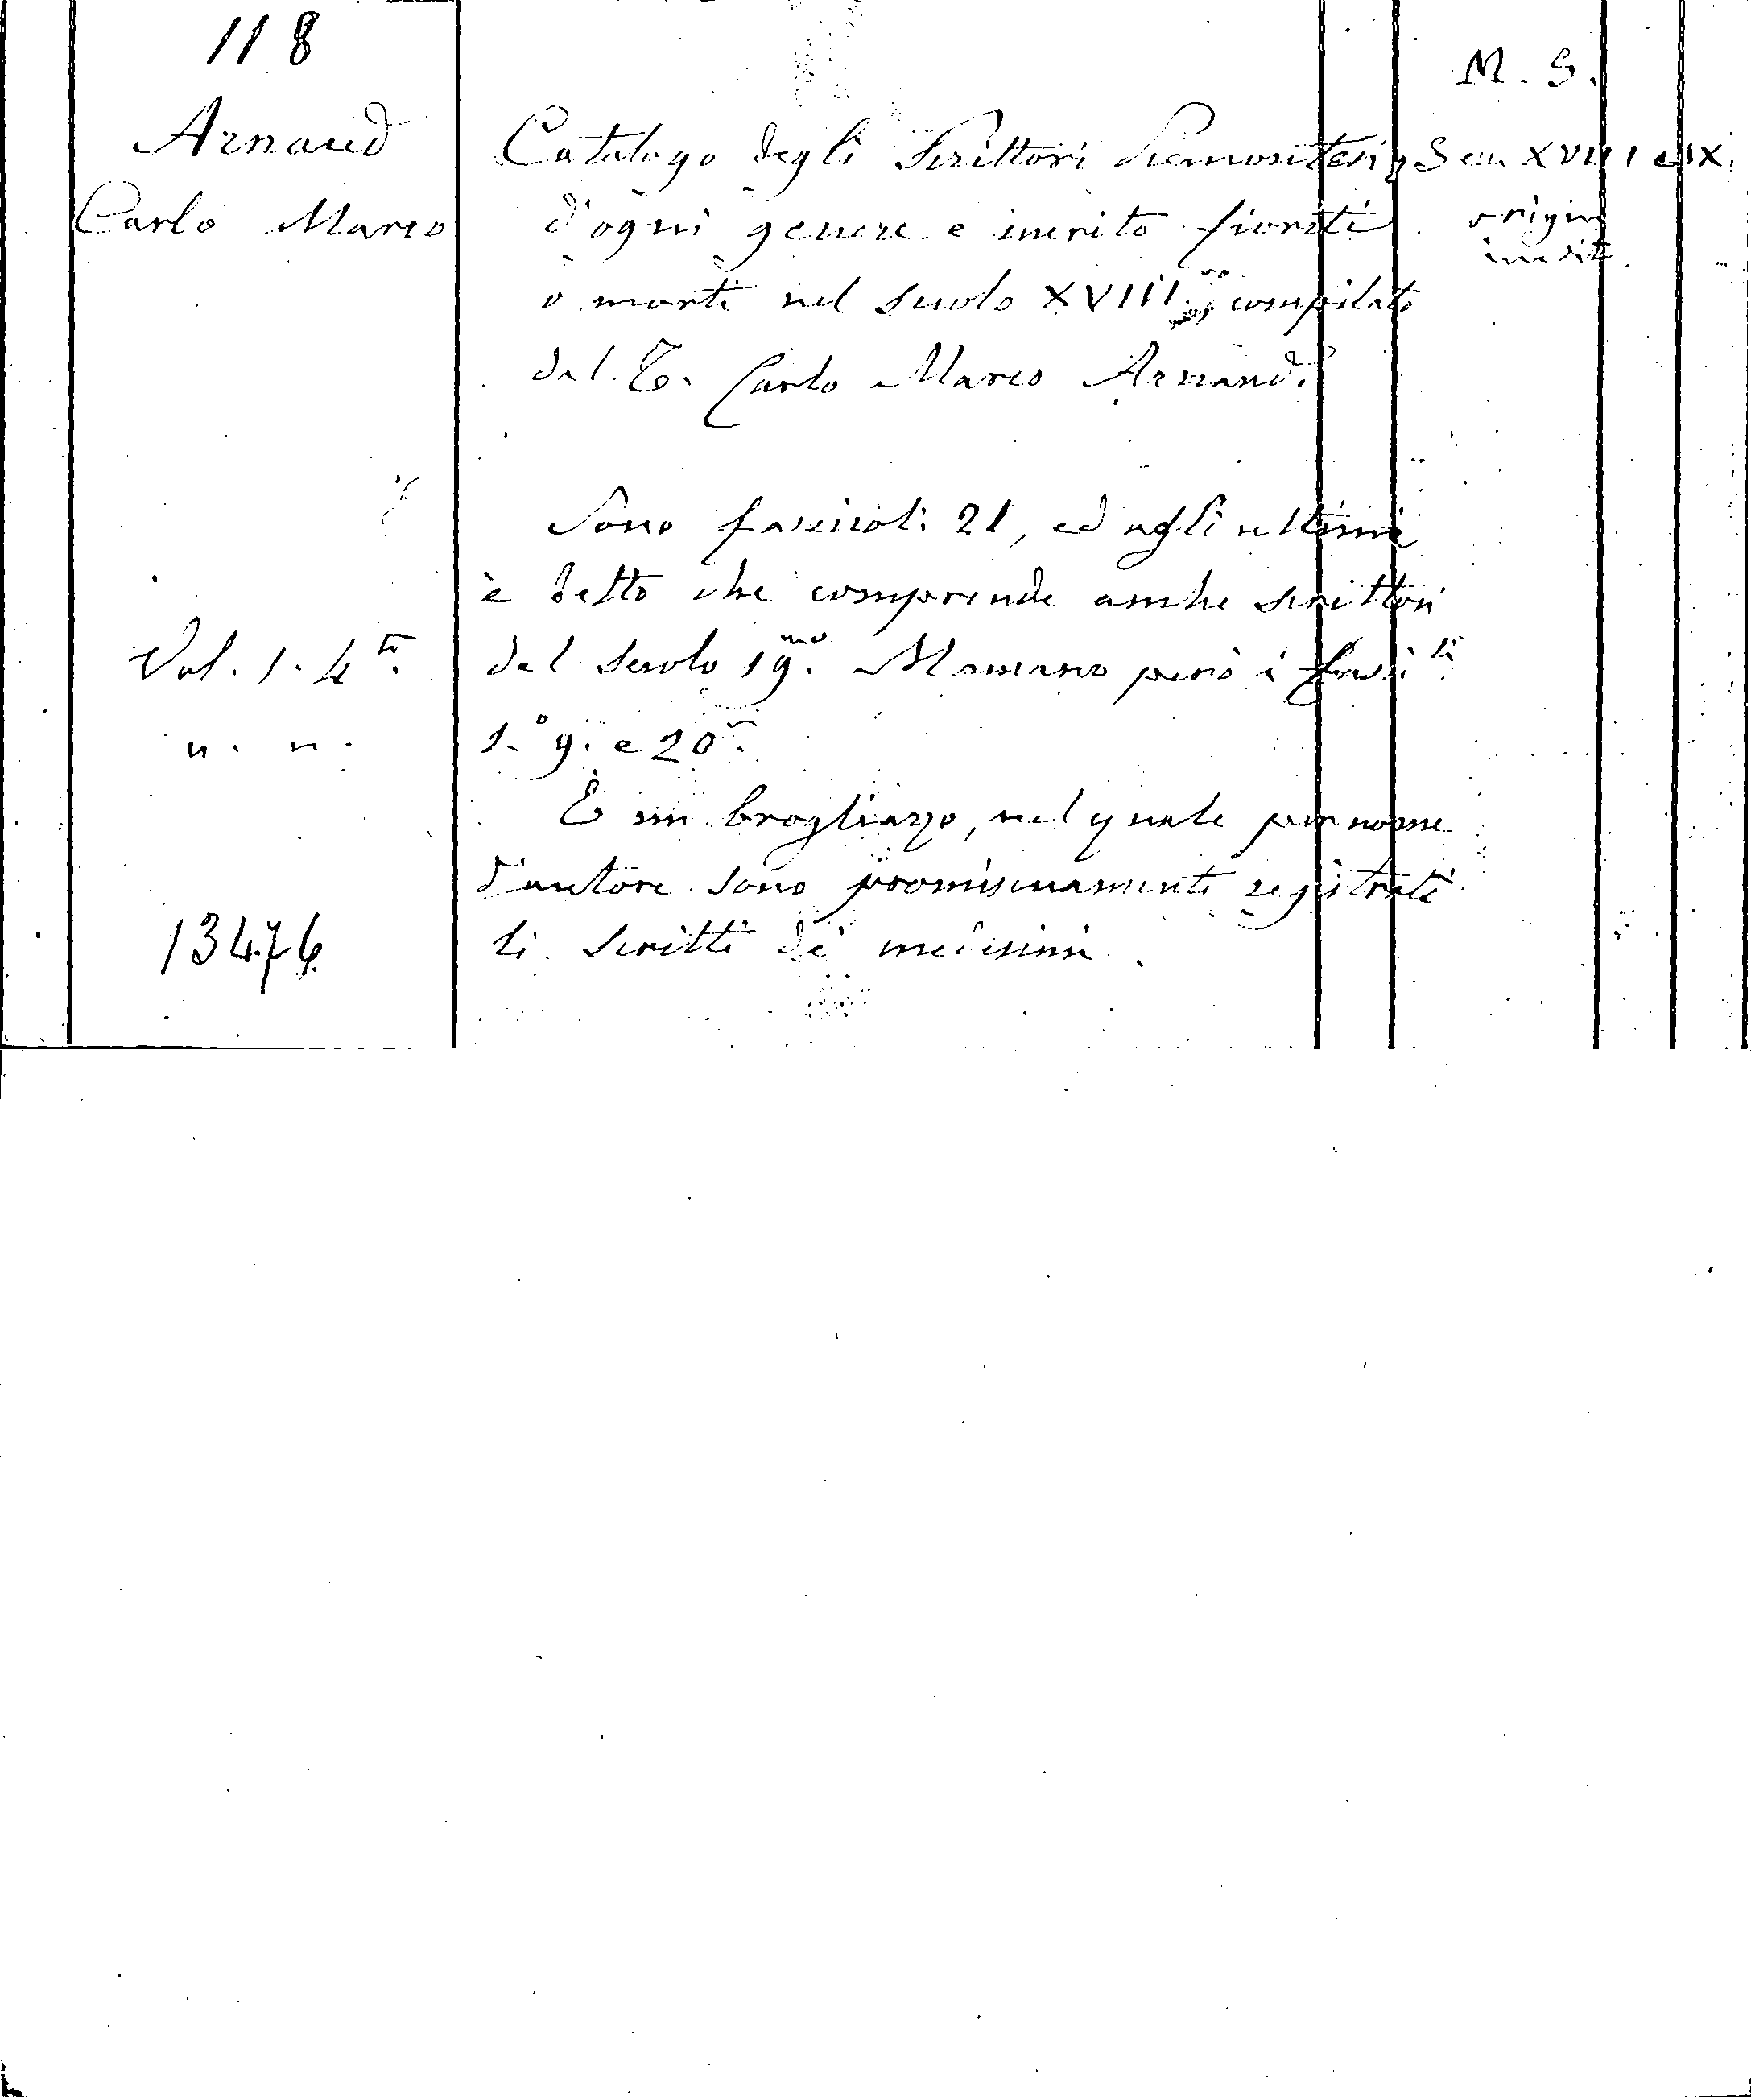 118
Arnaud
Carlo Marco
Vol. 1. 4to.
n. n.
13476
Catalogo degli Scrittori Piemontesi,
d'ogni genere e merito fioriti
o morti nel secolo XVIII.mo compilato
dal T. Carlo Marco Arnaud.
Sono fascicoli 21, ed agli ultimi
è detto che comprende anche scrittori
del secolo 19.mo Mancano però i fasci.li
1.° 9. e 20.
È un brogliazzo, nel quale per nome
d'autore sono promiscuamente registrati
li scritti de' medesimi.
M. S.
Sec. XVIII e IX.
origin
inedit